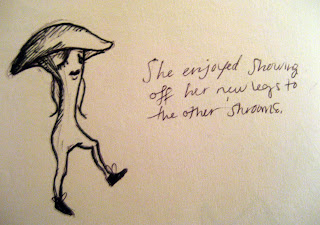 She enjoyed showing
off her new legs to
the other 'shrooms.